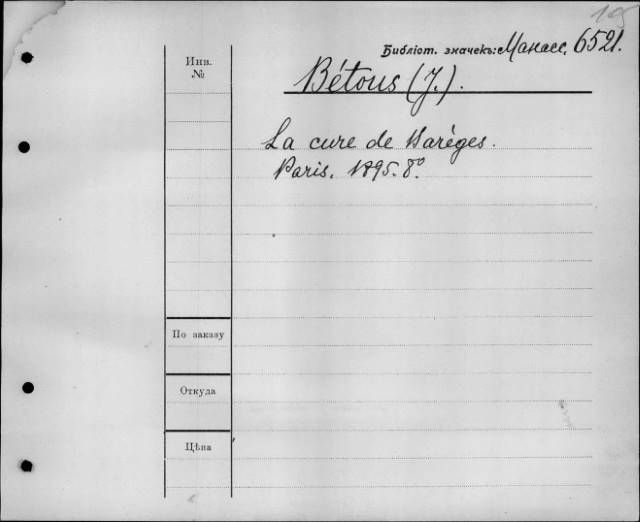 195
Библіот. значекъ: Манасс. 6521.
Инв.
№
Bétous (J.).
La cure de Barèges.
Paris. 1895. 8°.
По заказу
Откуда
Цѣна